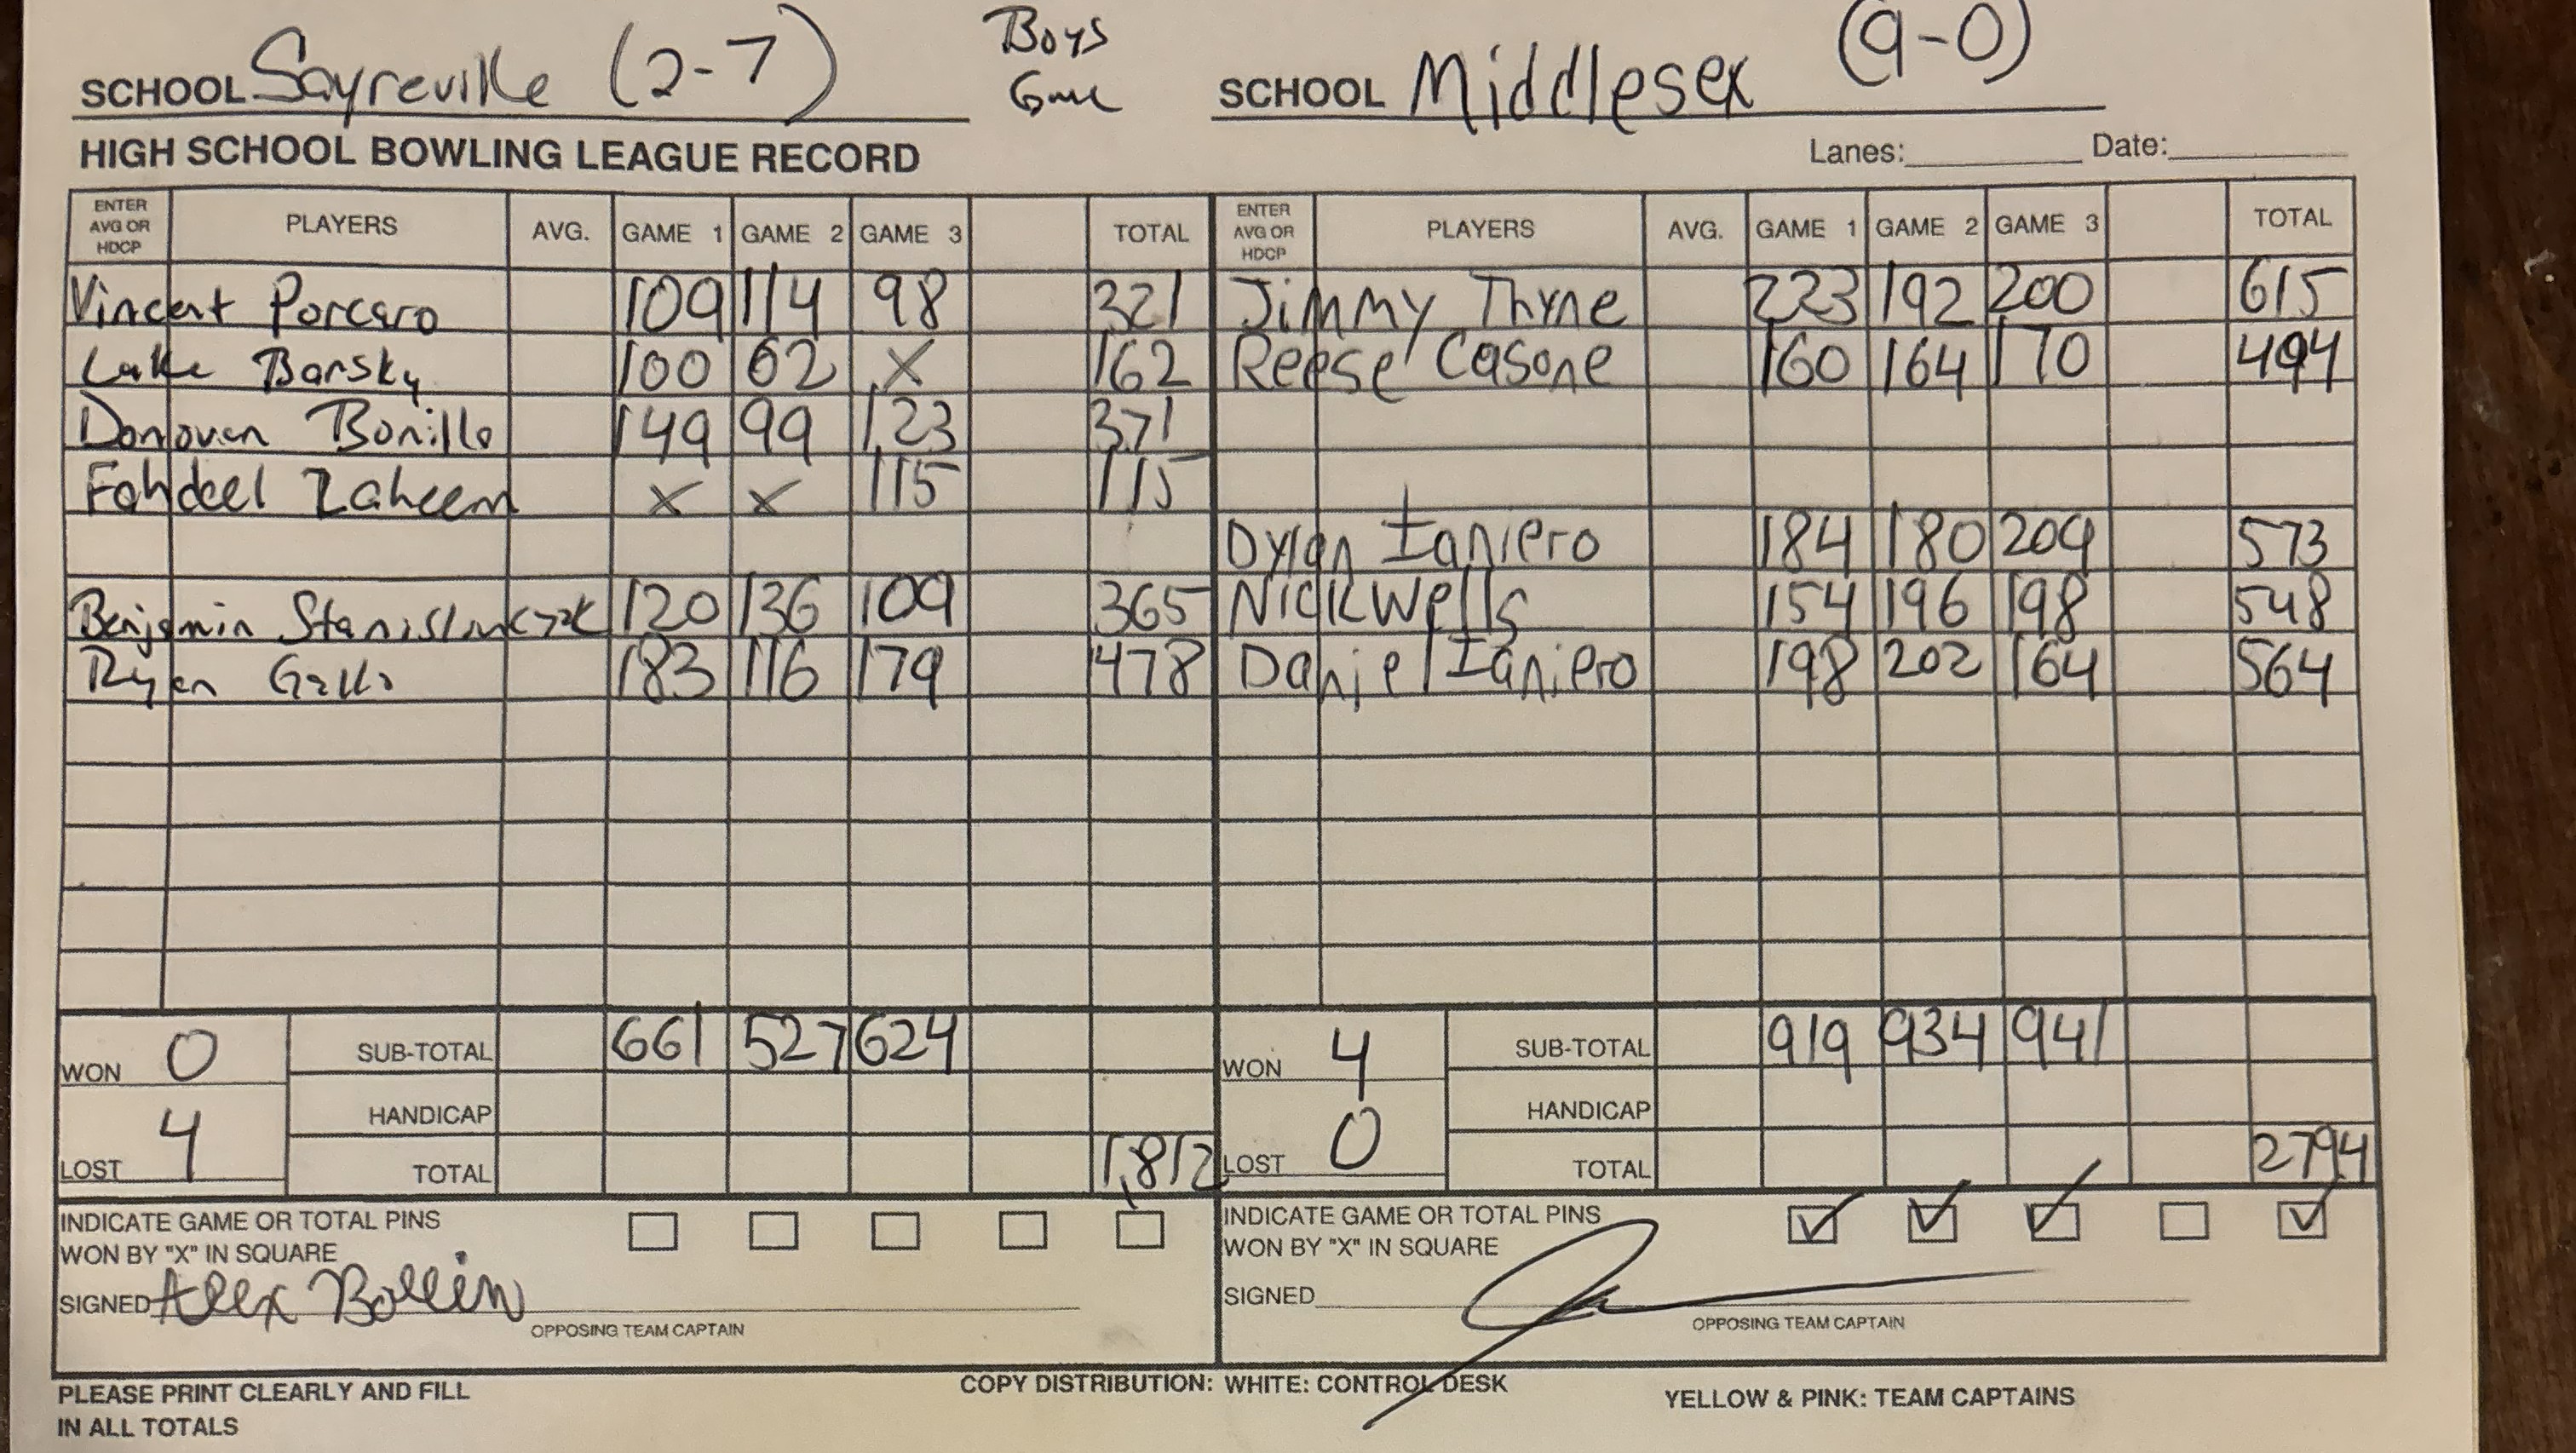 Boys
Game
SCHOOL Sayreville (2-7)
SCHOOL Middlesex (9-0)
HIGH SCHOOL BOWLING LEAGUE RECORD
Lanes: Date:
ENTER AVG OR HDCP PLAYERS AVG. GAME 1 GAME 2 GAME 3 TOTAL ENTER AVG OR HDCP PLAYERS AVG. GAME 1 GAME 2 GAME 3 TOTAL
Vincent Porcaro 109 114 98 321 Jimmy Thyne 223 192 200 615
Luke Barsky 100 62 X 162 Reese Casone 160 164 170 494
Donovan Bonillo 149 99 123 371
Fahdeel Zaheem X X 115 115
Dylan Ianiero 184 180 209 573
Benjamin 120 136 109 365 Nick Wells 154 196 198 548
Ryan Gallo 183 116 179 478 Daniel Ianiero 198 202 164 564
WON 0 SUB-TOTAL 661 527 624 WON 4 SUB-TOTAL 919 934 941
HANDICAP HANDICAP
LOST 4 TOTAL 1,812 LOST 0 TOTAL 2794
INDICATE GAME OR TOTAL PINS
WON BY "X" IN SQUARE
SIGNED Alex Bollin
OPPOSING TEAM CAPTAIN
INDICATE GAME OR TOTAL PINS
WON BY "X" IN SQUARE
SIGNED
OPPOSING TEAM CAPTAIN
PLEASE PRINT CLEARLY AND FILL
IN ALL TOTALS
COPY DISTRIBUTION: WHITE: CONTROL DESK
YELLOW & PINK: TEAM CAPTAINS